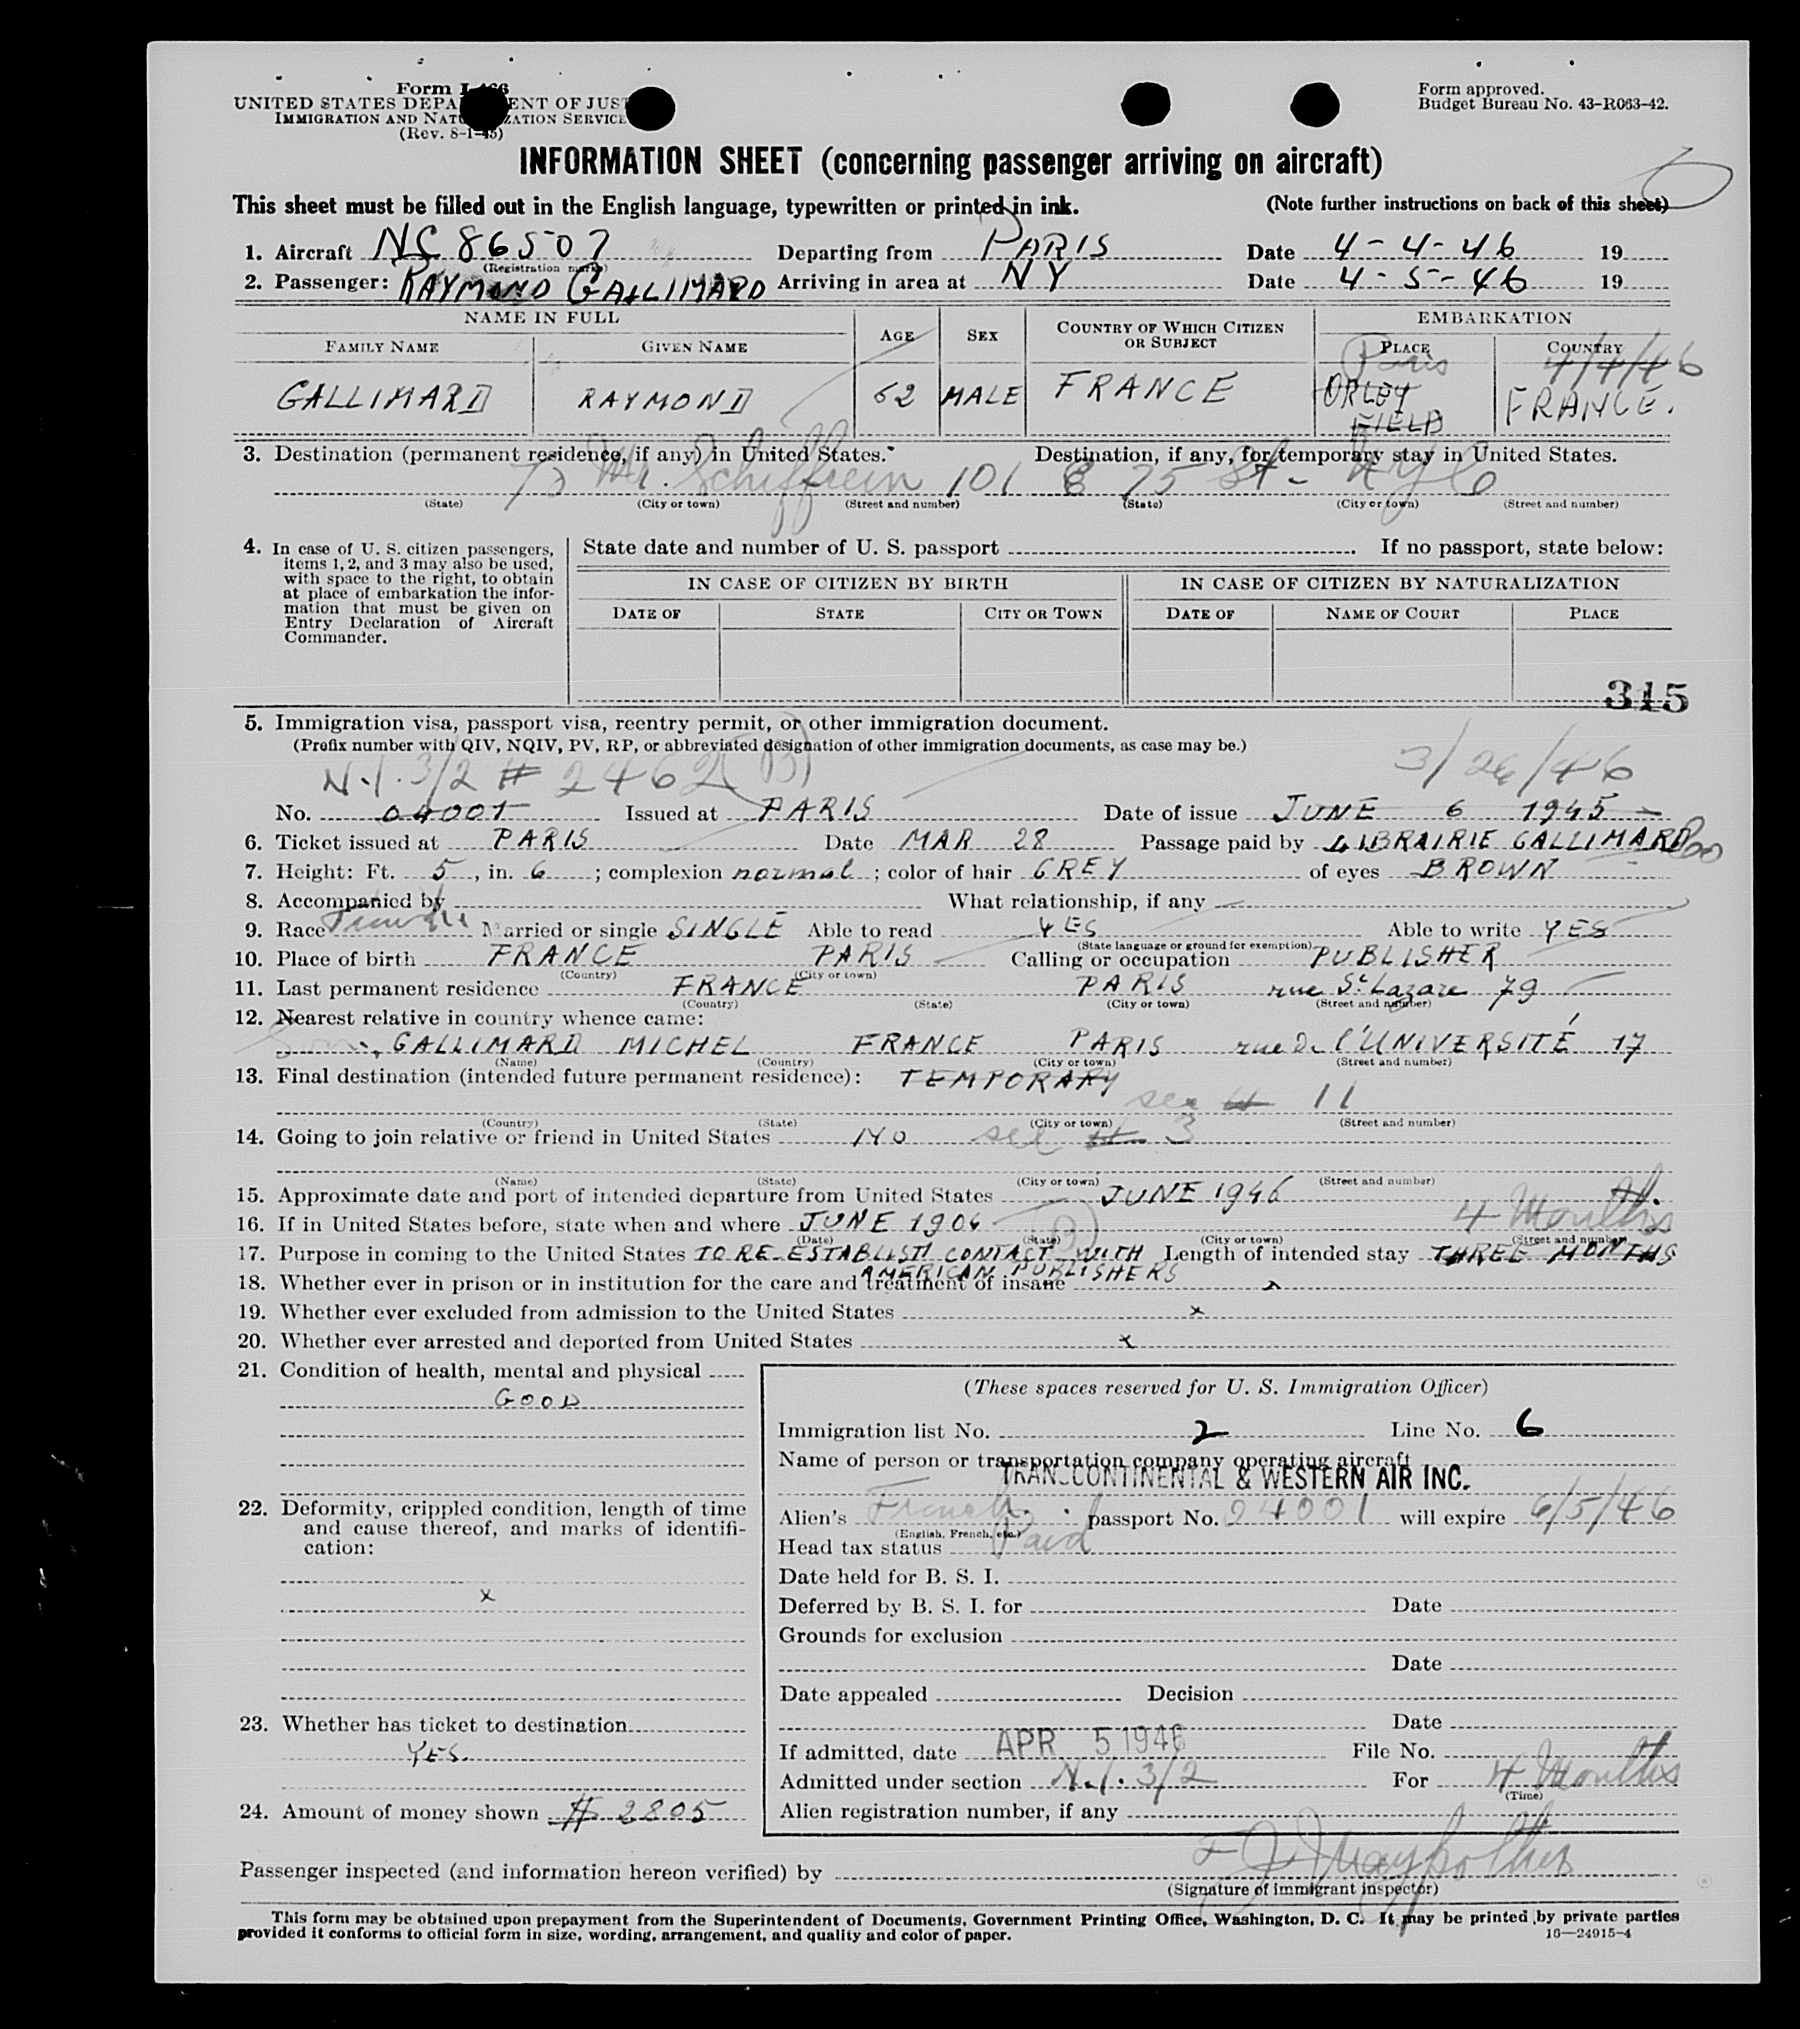 Form I-466
UNITED STATES DEPARTMENT OF JUSTICE
IMMIGRATION AND NATURALIZATION SERVICE
(Rev. 8-1-45)
Form approved.
Budget Bureau No. 43-R063-42.
INFORMATION SHEET (concerning passenger arriving on aircraft)
This sheet must be filled out in the English language, typewritten or printed in ink. (Note further instructions on back of this sheet)
1. Aircraft NC 86507 Departing from PARIS Date 4-4-46 19
(Registration marks)
2. Passenger: RAYMOND GALLIMARD Arriving in area at NY Date 4-5-46 19
NAME IN FULL AGE SEX COUNTRY OF WHICH CITIZEN OR SUBJECT EMBARKATION
FAMILY NAME GIVEN NAME PLACE COUNTRY
Paris 4/4/46
GALLIMARD RAYMOND 62 MALE FRANCE ORLEY FIELD FRANCE.
3. Destination (permanent residence, if any) in United States. Destination, if any, for temporary stay in United States.
Mr. Schiffrein 101 E 75 St - NY
(State) (City or town) (Street and number) (State) (City or town) (Street and number)
4. In case of U. S. citizen passengers, items 1, 2, and 3 may also be used, with space to the right, to obtain at place of embarkation the information that must be given on Entry Declaration of Aircraft Commander.
State date and number of U. S. passport . If no passport, state below:
IN CASE OF CITIZEN BY BIRTH IN CASE OF CITIZEN BY NATURALIZATION
DATE OF STATE CITY OR TOWN DATE OF NAME OF COURT PLACE
315
5. Immigration visa, passport visa, reentry permit, or other immigration document.
(Prefix number with QIV, NQIV, PV, RP, or abbreviated designation of other immigration documents, as case may be.)
N.I. 3/2 # 2462 (B) 3/26/46
No. 04001 Issued at PARIS Date of issue JUNE 6 1945
6. Ticket issued at PARIS Date MAR 28 Passage paid by LIBRAIRIE GALLIMARD
7. Height: Ft. 5, in. 6; complexion normal; color of hair GREY of eyes BROWN
8. Accompanied by What relationship, if any
9. Race French Married or single SINGLE Able to read YES Able to write YES
(State language or ground for exemption)
10. Place of birth FRANCE PARIS Calling or occupation PUBLISHER
(Country) (City or town)
11. Last permanent residence FRANCE PARIS rue St Lazare 79
(Country) (State) (City or town) (Street and number)
12. Nearest relative in country whence came:
Son, GALLIMARD MICHEL FRANCE PARIS rue de l'UNIVERSITÉ 17
(Name) (Country) (City or town) (Street and number)
13. Final destination (intended future permanent residence): TEMPORARY
see # 11
(Country) (State) (City or town) (Street and number)
14. Going to join relative or friend in United States NO see # 3
(Name) (State) (City or town) (Street and number)
15. Approximate date and port of intended departure from United States JUNE 1946
16. If in United States before, state when and where JUNE 1906 4 Months
(Date) (State) (City or town) (Street and number)
17. Purpose in coming to the United States TO RE-ESTABLISH CONTACT WITH Length of intended stay THREE MONTHS
AMERICAN PUBLISHERS
18. Whether ever in prison or in institution for the care and treatment of insane x
19. Whether ever excluded from admission to the United States x
20. Whether ever arrested and deported from United States x
21. Condition of health, mental and physical
GOOD
22. Deformity, crippled condition, length of time and cause thereof, and marks of identification:
x
23. Whether has ticket to destination
YES.
24. Amount of money shown $ 2805
(These spaces reserved for U. S. Immigration Officer)
Immigration list No. 2 Line No. 6
Name of person or transportation company operating aircraft
TRANSCONTINENTAL & WESTERN AIR INC.
Alien's French passport No. 04001 will expire 6/5/46
(English, French, etc.)
Head tax status Paid
Date held for B. S. I.
Deferred by B. S. I. for Date
Grounds for exclusion
Date
Date appealed Decision
Date
If admitted, date APR 5 1946 File No.
Admitted under section N.I. 3/2 For 4 Months
(Time)
Alien registration number, if any
Passenger inspected (and information hereon verified) by
(Signature of immigrant inspector)
This form may be obtained upon prepayment from the Superintendent of Documents, Government Printing Office, Washington, D. C. It may be printed by private parties
provided it conforms to official form in size, wording, arrangement, and quality and color of paper.
16—24915-4